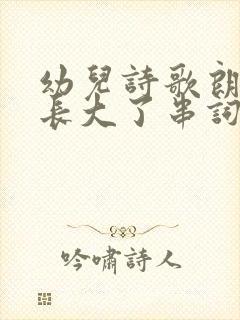 幼兒詩歌朗
長大了串詞
吟嘯詩人